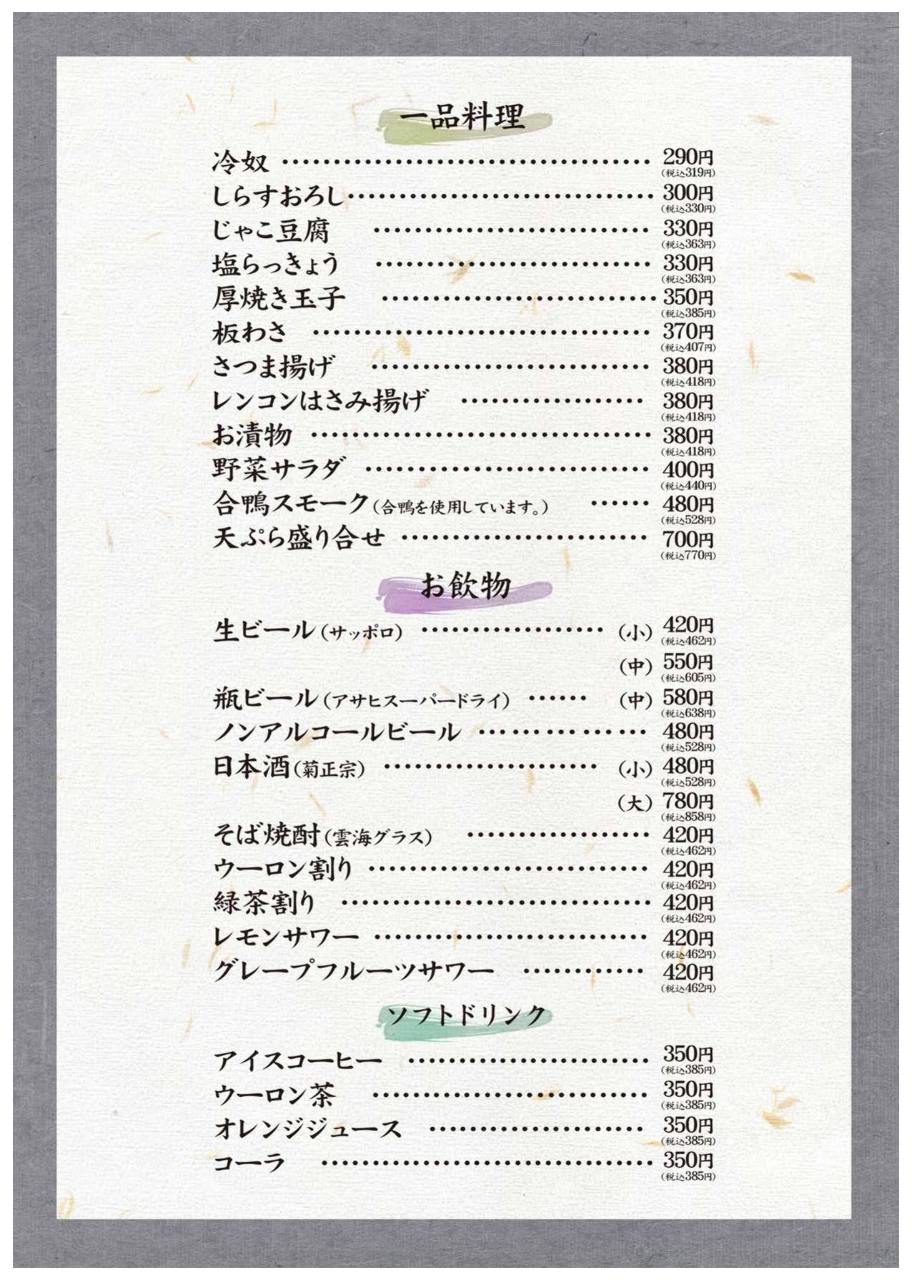 一品料理
冷奴 290円
(税込319円)
しらすおろし 300円
(税込330円)
じゃこ豆腐 330円
(税込363円)
塩らっきょう 330円
(税込363円)
厚焼き玉子 350円
(税込385円)
板わさ 370円
(税込407円)
さつま揚げ 380円
(税込418円)
レンコンはさみ揚げ 380円
(税込418円)
お漬物 380円
(税込418円)
野菜サラダ 400円
(税込440円)
合鴨スモーク(合鴨を使用しています。) 480円
(税込528円)
天ぷら盛り合せ 700円
(税込770円)
お飲物
生ビール(サッポロ) (小) 420円
(税込462円)
(中) 550円
(税込605円)
瓶ビール(アサヒスーパードライ) (中) 580円
(税込638円)
ノンアルコールビール 480円
(税込528円)
日本酒(菊正宗) (小) 480円
(税込528円)
(大) 780円
(税込858円)
そば焼酎(雲海グラス) 420円
(税込462円)
ウーロン割り 420円
(税込462円)
緑茶割り 420円
(税込462円)
レモンサワー 420円
(税込462円)
グレープフルーツサワー 420円
(税込462円)
ソフトドリンク
アイスコーヒー 350円
(税込385円)
ウーロン茶 350円
(税込385円)
オレンジジュース 350円
(税込385円)
コーラ 350円
(税込385円)